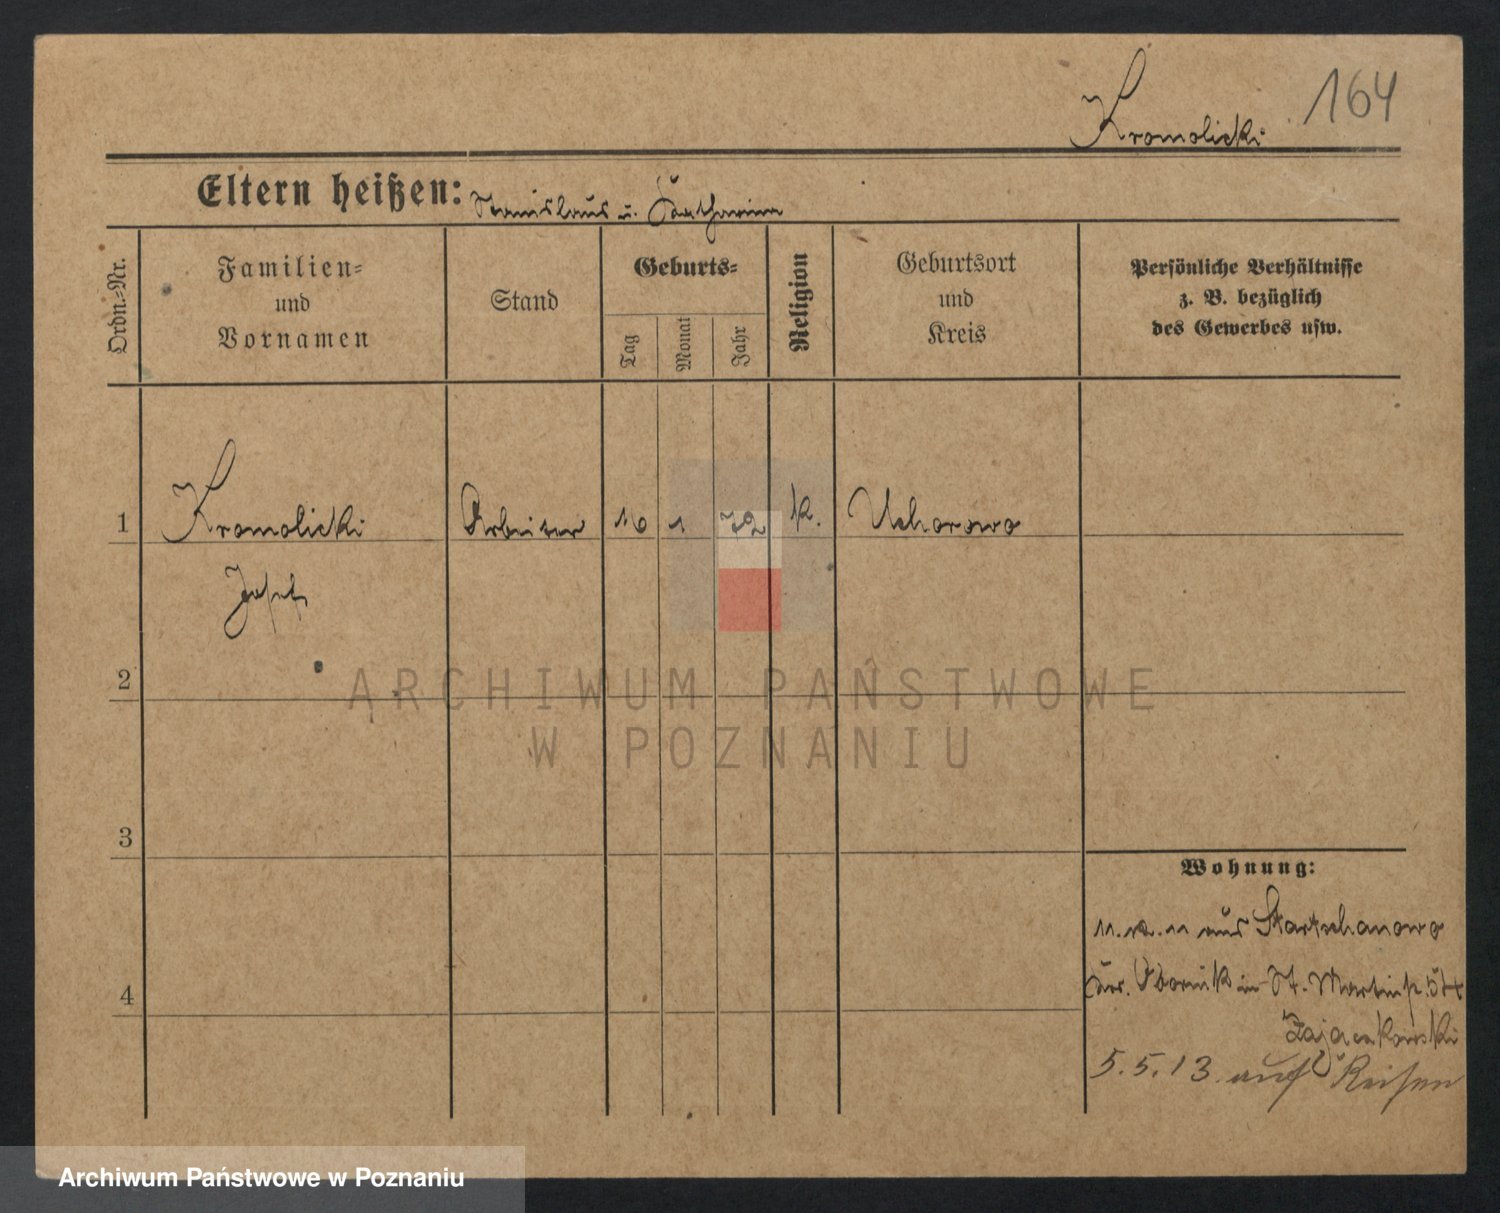 Kromolicki 164
Eltern heißen: Stanislaus u. Katharina
Ordn.-Nr.
Familien- und Vornamen
Stand
Geburts-
Tag
Monat
Jahr
Religion
Geburtsort und Kreis
Persönliche Verhältnisse
z. B. bezüglich
des Gewerbes usw.
1 Kromolicki Arbeiter 16 1 72 k. Uchorowo
Josef
2
ARCHIWUM PAŃSTWOWE
W POZNANIU
3
Wohnung:
11.12.11 aus Startschanowo
Kr. Obornik in St. Martin
Zajaczkowski
4
5.5.13 auf Reisen
Archiwum Państwowe w Poznaniu